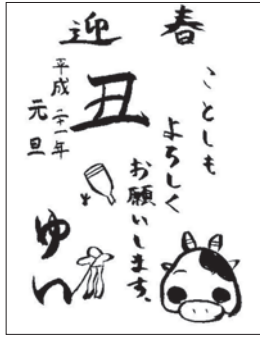 迎春
ことしも
よろしく
お願いします。
丑
平成二十一年
元旦